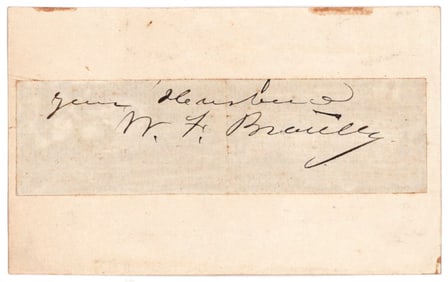 your Husband
W. F. Brantley